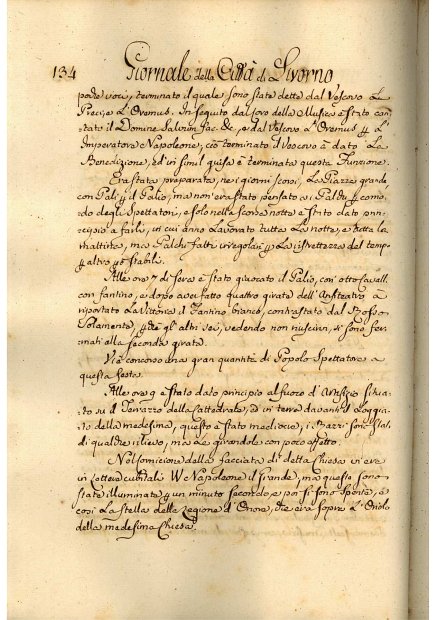 134 Giornale della Città di Livorno
poche voci, terminato il quale sono state dette dal Vescovo Le
Preci, e L'Oremus. In seguito dal Coro della Musica è stato can
tato il Domine Salvum fac &c, e dal Vescovo L'Oremus p L'
Imperatore Napoleone; ciò terminato il Vescovo à dato La
Benedizione, ed in simil guisa è terminata questa Funzione.
Era stata preparata, nei giorni scorsi, La Piazza grande
con Pali p il Palio, ma non era stato pensato ai Palchi p comò
do degli Spettatori, e solo nella scorsa notte è stato dato prin
cipio a farli, in cui anno Lavorato tutta La notte, e tutta la
mattina, ma Palchi fatti irregolari p La ristrettezza del tempo
p altro stabili.
Alle ore 7 di Sera è stato giuocato il Palio, con otto Cavalli
con fantino, e dopo aver fatto quattro girate dell'Anfiteatro à
riportato La Vittoria il Fantino bianco, contrastato dal Rosso
Solamente, che gli altri sei, vedendo non riuscirvi, si sono fer
mati alla seconda girata.
Vi è concorso una gran quantità di Popolo Spettatore a
questa festa.
Alle ore 9 è stato dato principio al fuoco d'Artifizio situa
to su il Terrazzo della Cattedrale, ed in terra davanti il Loggia
to della medesima, questo è stato mediocre, i Razzi sono stati
di qualche rilievo, ma Le girandole con poco effetto.
Nel cornicione della facciata di detta Chiesa vi era
in Lettere cubitali W Napoleone il Grande, ma queste sono
state illuminate p un minuto secondo, e poi si sono spente, e
così La stella della Legione d'Onore, che era sopra L'Oriolo
della medesima Chiesa.